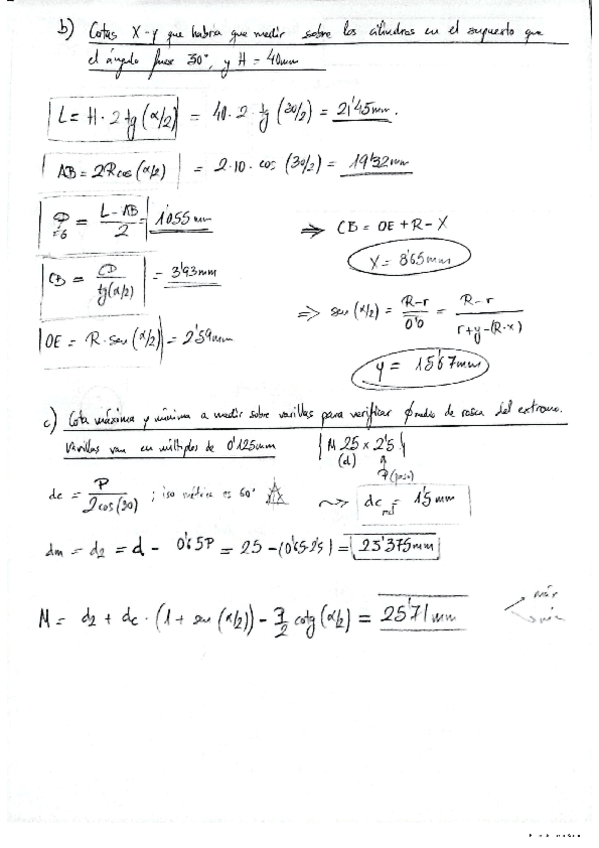 b) Cotas X-y que habría que medir sobre los cilindros en el supuesto que
el ángulo fuese 30°, y H = 40mm
L = H · 2 tg (α/2) = 40 · 2 · tg (30/2) = 21'45mm.
AB = 2R cos (α/2) = 2·10 · cos (30/2) = 19'32mm
= L - AB / 2 = 1'055mm
CB = CD / tg(α/2) = 3'93mm
OE = R · sen (α/2) = 2'59mm
⇒ CB = OE + R - X
X = 8'65mm
⇒ sen (α/2) = R-r / O'O = R-r / r+y-(R-x)
y = 15'67mm
c) Cota máxima y mínima a medir sobre varillas para verificar ϕmedio de rosca del extremo.
Varillas van en múltiplos de 0'125mm
M 25 x 2'5
(d)
P (paso)
dc = P / 2cos(30) ; iso métrica es 60°
dc = 1'5mm
dm = d2 = d - 0'65P = 25 - (0'65·2'5) = 23'375mm
M = d2 + dc · (1 + sen (α/2)) - P/2 cotg (α/2) = 25'71mm
máx
mín